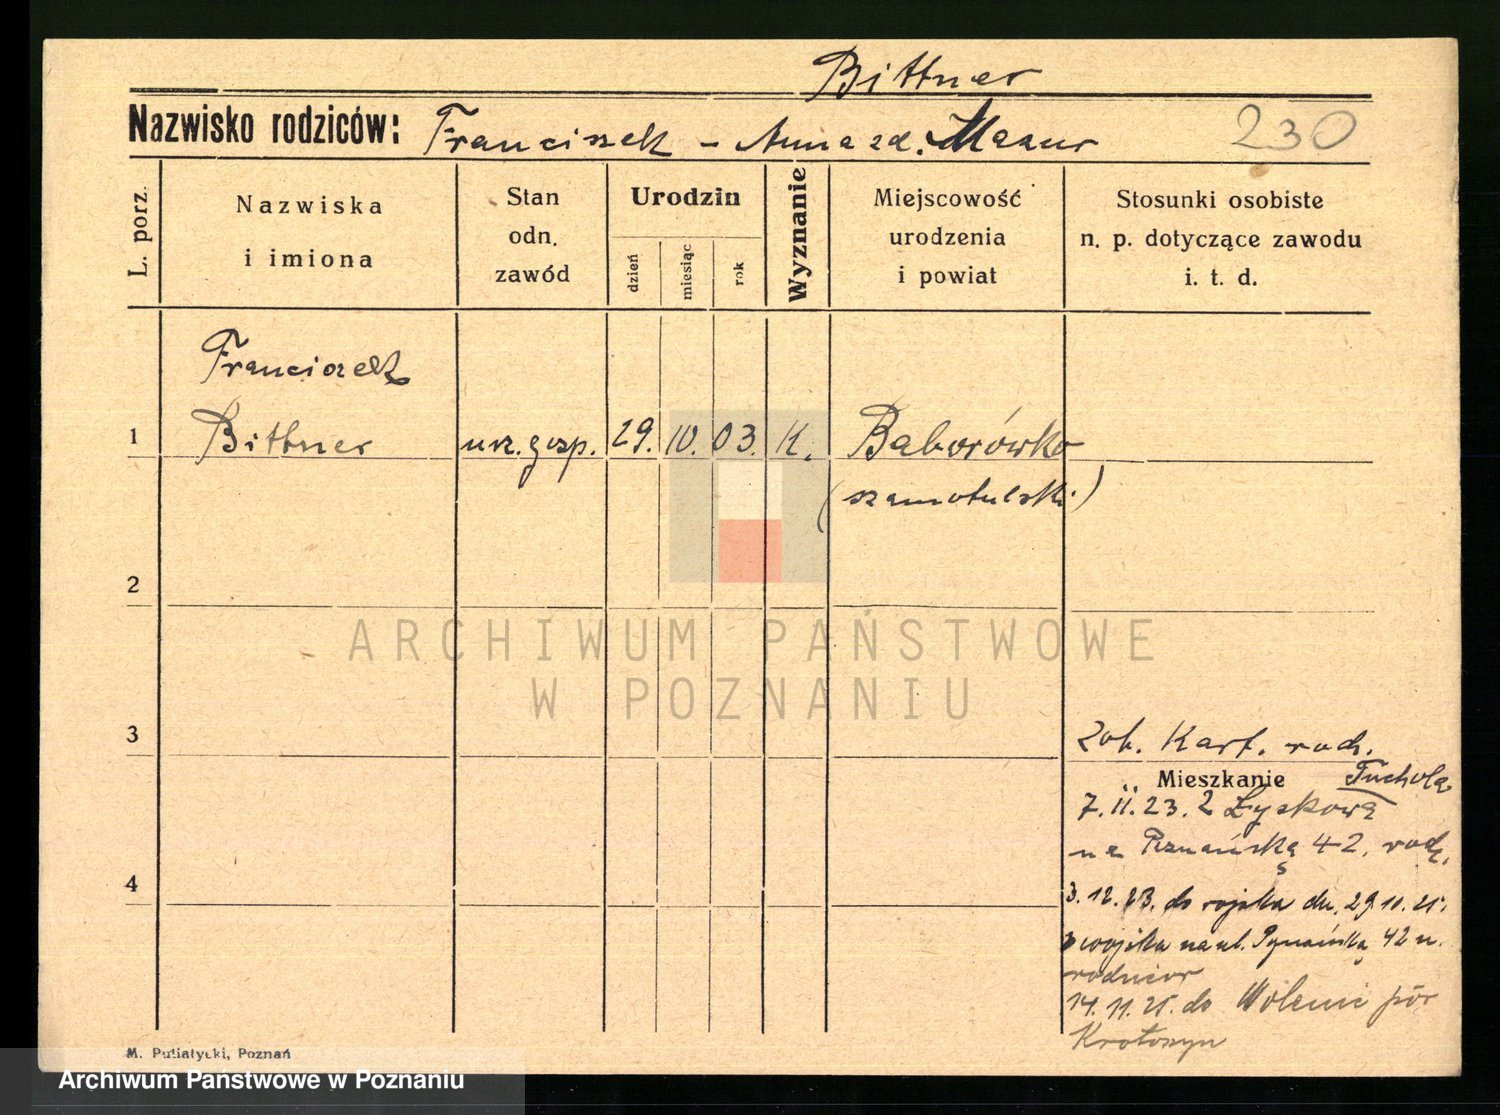 Bittner
Nazwisko rodziców: Franciszek - Anna zd. Mazur
230
L. porz.
Nazwiska
i imiona
Stan
odn.
zawód
Urodzin
dzień
miesiąc
rok
Wyznanie
Miejscowość
urodzenia
i powiat
Stosunki osobiste
n. p. dotyczące zawodu
i. t. d.
Franciszek
1 Bittner urz. gosp. 29. 10. 03. K. Baborówko
(szamotulski)
2
3
Zob. Kart. rodz.
Mieszkanie Tucholą
7. II. 23. z Łyskowa
na Poznańską 42, rodz.
4
3. 12. 23. do wojska dn. 29 10. 25.
z wojska na ul. Poznańską 42 u.
rodziców
14. 11. 25. do pow
Krotoszyn
M. Putiatycki, Poznań
ARCHIWUM PAŃSTWOWE
W POZNANIU
Archiwum Państwowe w Poznaniu